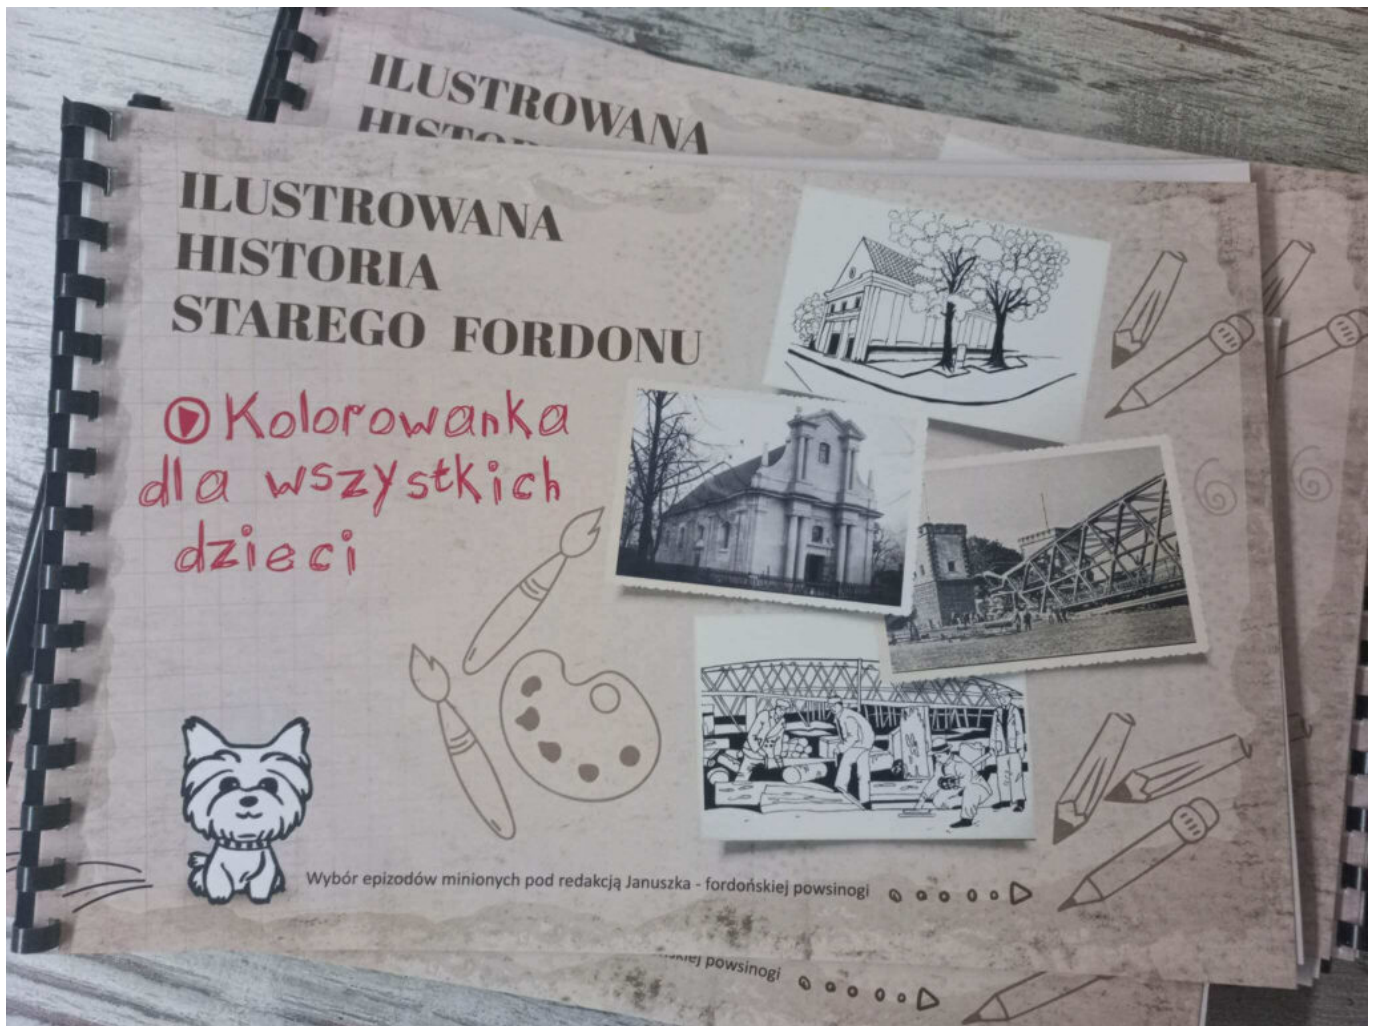 ILUSTROWANA
ILUSTROWANA
HISTORIA
STAREGO FORDONU
Kolorowanka
dla wszystkich
dzieci
Wybór epizodów minionych pod redakcją Januszka - fordońskiej powsinogi
powsinogi